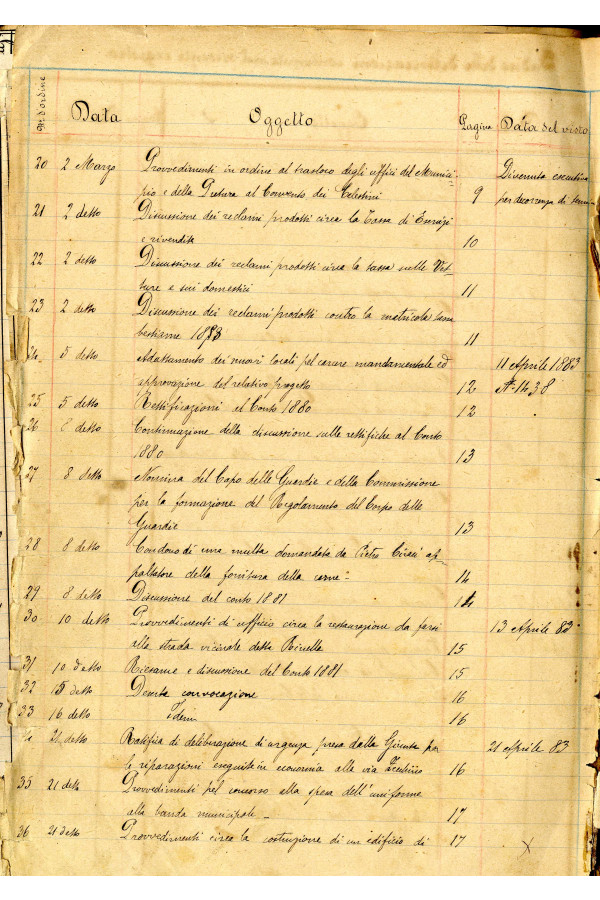 N. d'ordine Data Oggetto Pagina Data del visto
20 2 Marzo Provvedimenti in ordine al trasloco degli uffici del Munici- Divenuta esecutiva
pio e della Pretura al Convento dei Celestini 9 per decorrenza di
21 2 detto Discussione dei reclami prodotti circa la Tassa di Esercizi
e rivendita 10
22 2 detto Discussione dei reclami prodotti circa la tassa sulle Vet-
ture e sui domestici 11
23 2 detto Discussione dei reclami prodotti contro la matricola
bestiame 1883 11
24 5 detto Adattamento dei nuovi locali pel carcere mandamentale ed 11 Aprile 1883
approvazione del relativo progetto 12 N. 1438
25 5 detto Rettificazioni al Conto 1880 12
26 8 detto Continuazione della discussione sulle rettifiche al Conto
1880 13
27 8 detto Nomina del Capo delle Guardie e della Commissione
per la formazione del Regolamento del Corpo delle
Guardie 13
28 8 detto Condono di una multa domandata da Pietro ap-
paltatore della fornitura della carne 14
29 8 detto Discussione del conto 1881 14
30 10 detto Provvedimenti di ufficio circa la restaurazione da farsi 13 Aprile 83
alla strada vicinale detta 15
31 10 detto Riesame e discussione del Conto 1881 15
32 15 detto Deserta convocazione 16
33 16 detto Idem 16
21 detto Ratifica di deliberazione di urgenza presa dalla Giunta per 21 Aprile 83
le riparazioni eseguite in economia alla via 16
35 21 detto Provvedimenti pel concorso alla spesa dell'uniforme
alla banda municipale 17
36 21 detto Provvedimenti circa la costruzione di un edificio di 17 X